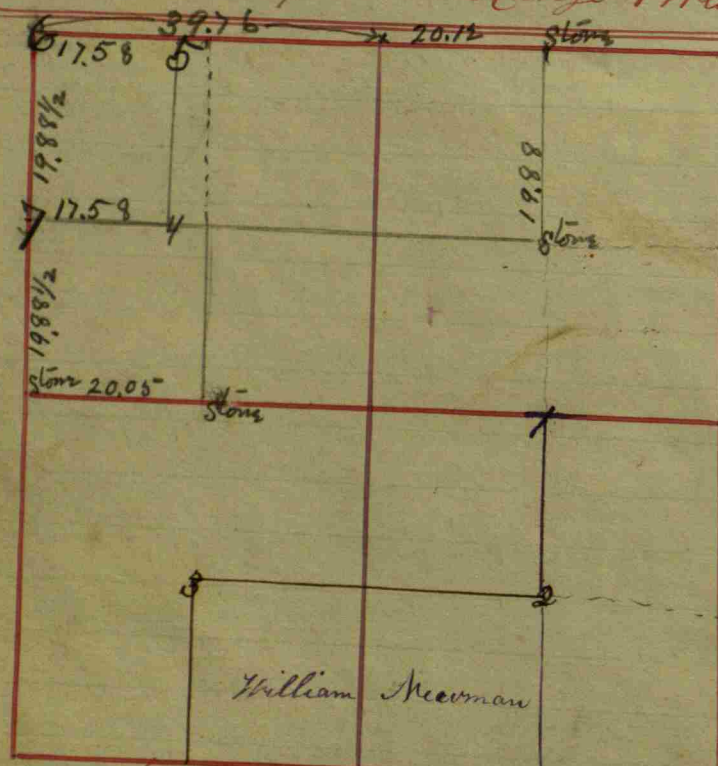 39.76
6 17.58 5 20.12 Stone
19.88½
19.88
7 17.58 4
Stone
19.88½
Stone 20.05
Stone
1
3
2
William Newman